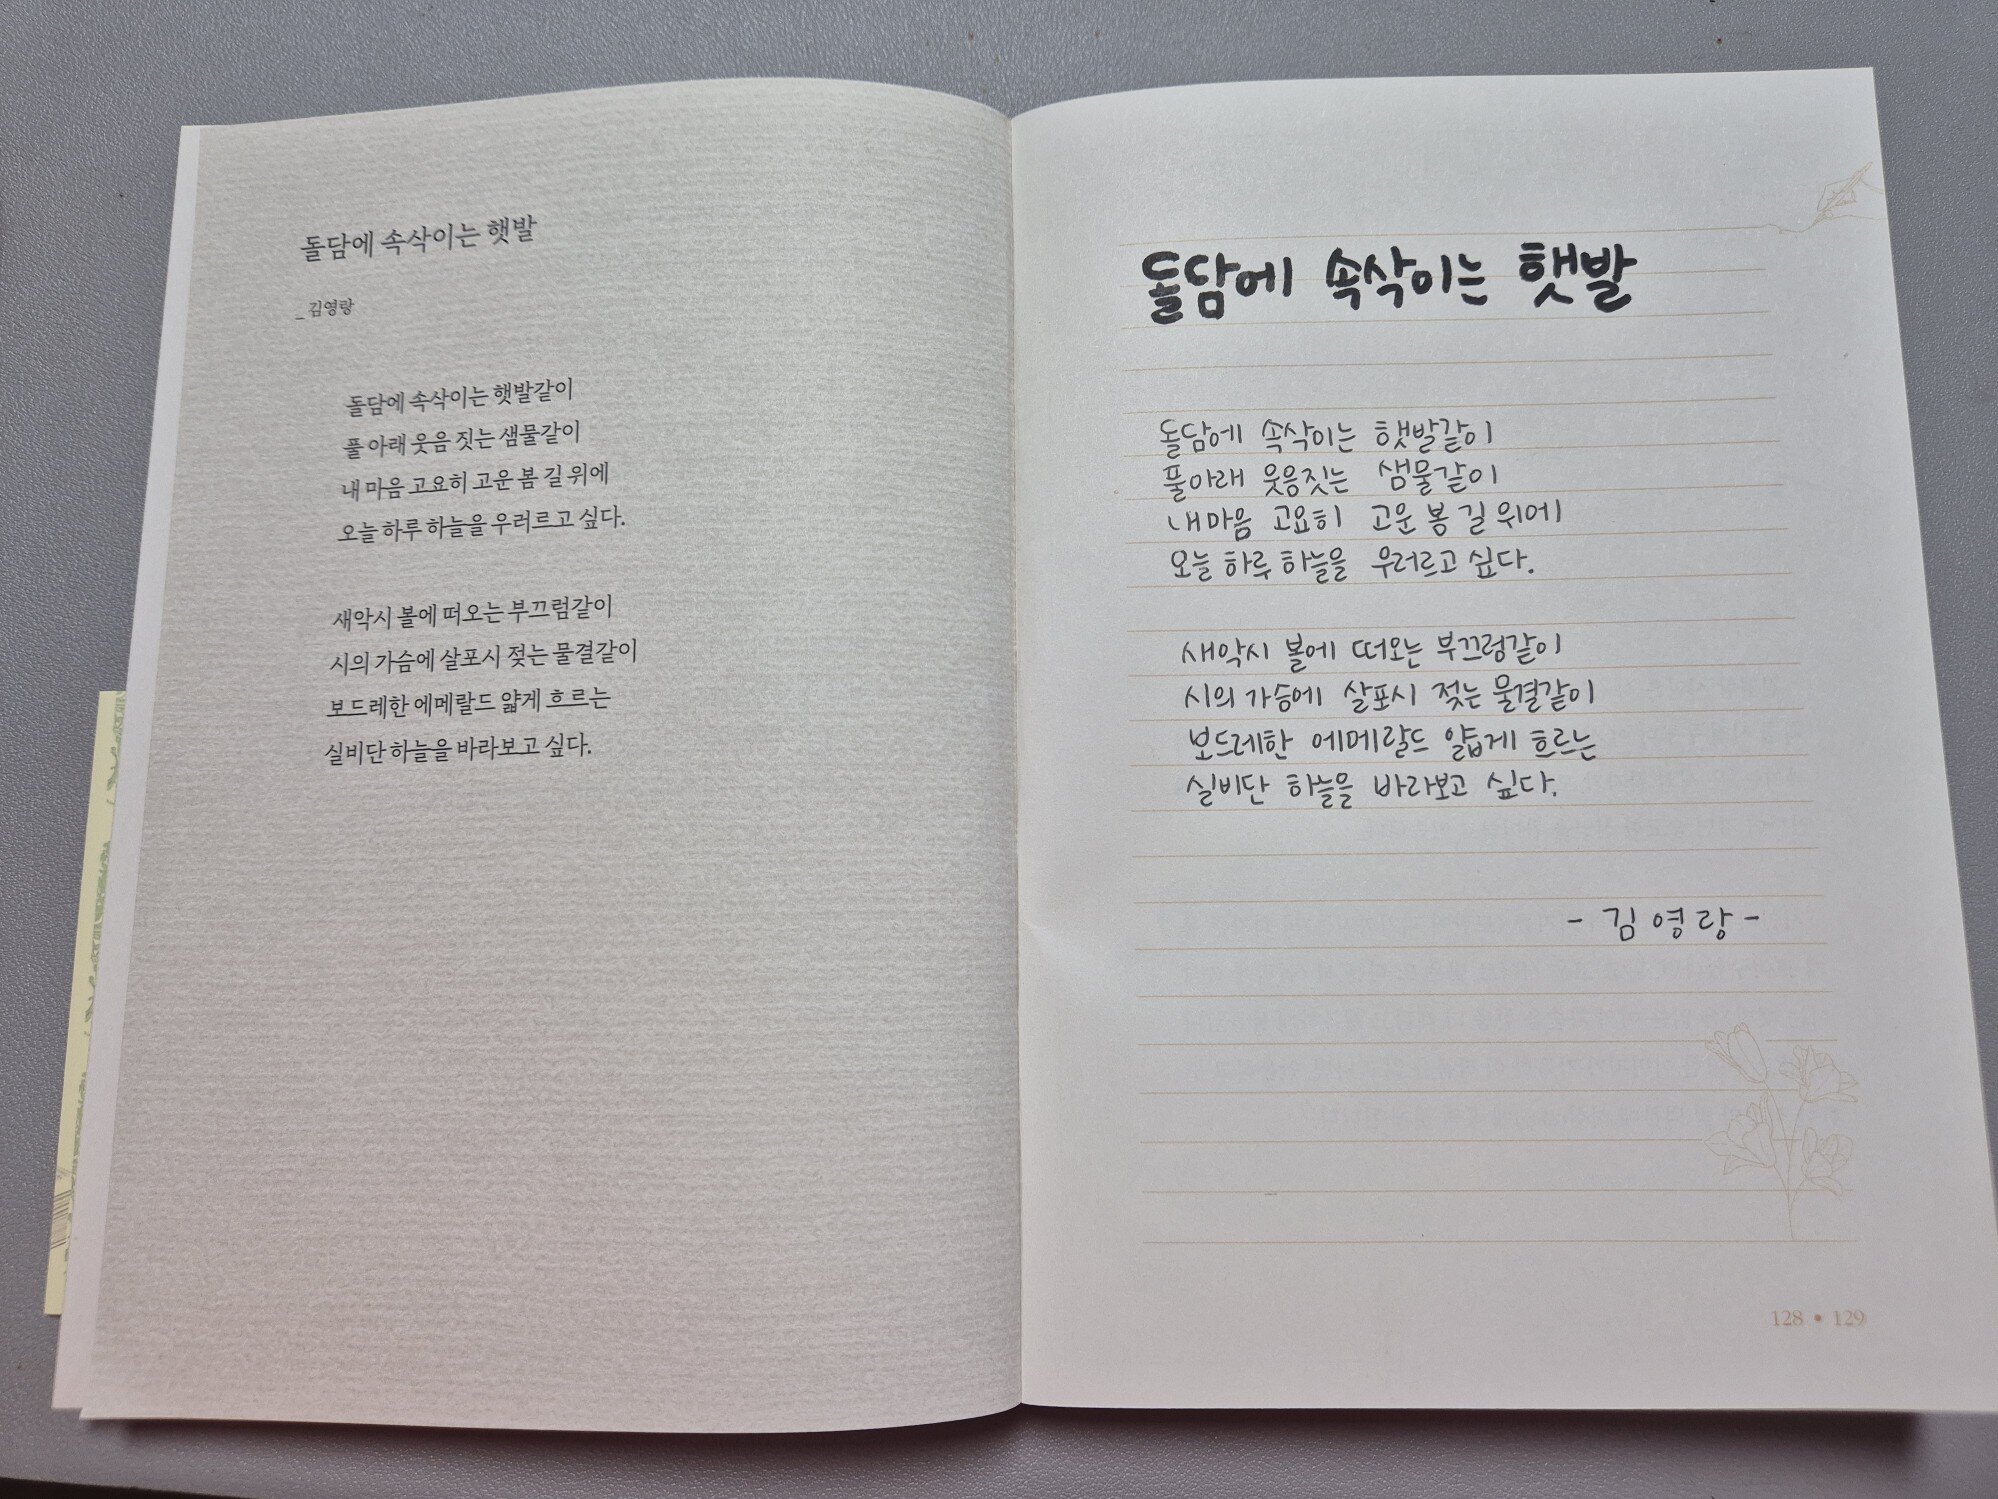 돌담에 속삭이는 햇발
_ 김영랑
돌담에 속삭이는 햇발같이
풀 아래 웃음 짓는 샘물같이
내 마음 고요히 고운 봄 길 위에
오늘 하루 하늘을 우러르고 싶다.
새악시 볼에 떠오는 부끄럼같이
시의 가슴에 살포시 젖는 물결같이
보드레한 에메랄드 얇게 흐르는
실비단 하늘을 바라보고 싶다.
돌담에 속삭이는 햇발
돌담에 속삭이는 햇발같이
풀아래 웃음짓는 샘물같이
내마음 고요히 고운 봄 길 위에
오늘 하루 하늘을 우러르고 싶다.
새악시 볼에 떠오는 부끄럼같이
시의 가슴에 살포시 젖는 물결같이
보드레한 에메랄드 얇게 흐르는
실비단 하늘을 바라보고 싶다.
- 김영랑 -
128 • 129